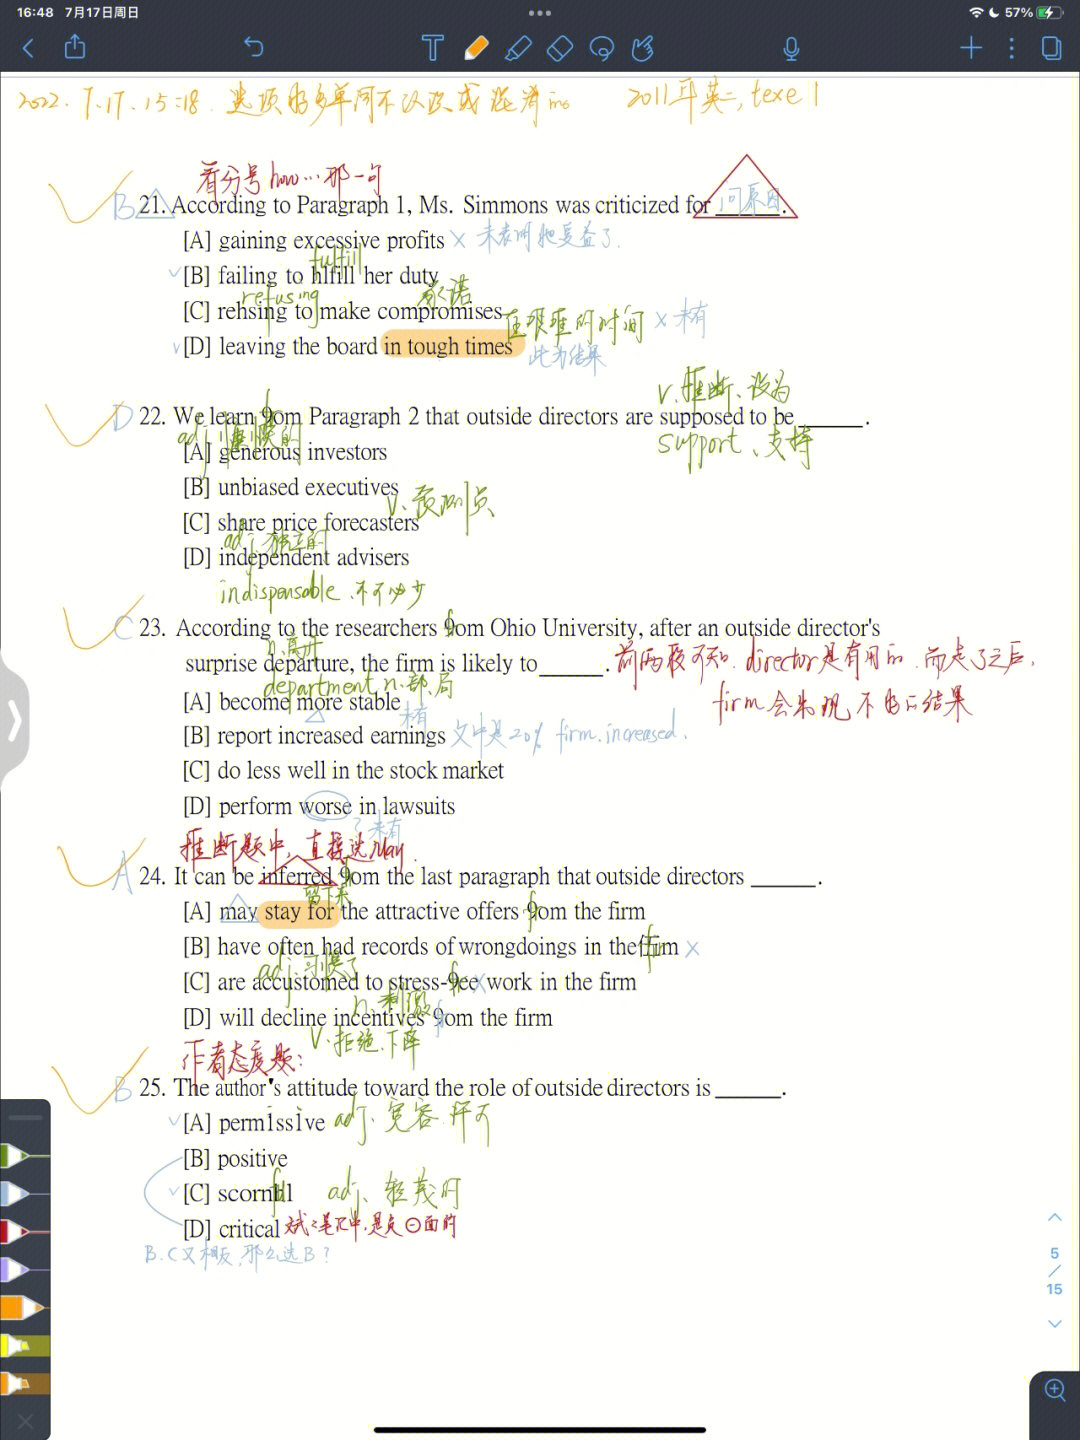 16:48 7月17日周日
57%
2022.7.17.15:18. 选项的多单词不认识或混淆
2011年英二, texe 1
看分号how…那一句
B 21. According to Paragraph 1, Ms. Simmons was criticized for ______.
问原因
[A] gaining excessive profits × 未表明她受益了.
fulfill
[B] failing to hlfill her duty
refusing 承诺
[C] rehsing to make compromises
在艰难的时间 × 未有
[D] leaving the board in tough times
此为结果
v.推断、设为
D 22. We learn 9om Paragraph 2 that outside directors are supposed to be ______.
f
support、支持
adj.慷慨的
[A] generous investors
[B] unbiased executives
v、预测员
[C] share price forecasters
adj.独立的
[D] independent advisers
indispensable.不可少
C 23. According to the researchers 9om Ohio University, after an outside director's
f
n.离开
surprise departure, the firm is likely to ______.
前两段可知. director是有用的.而走了之后,
firm会出现不好的结果
department n.部.局
[A] become more stable
未有
[B] report increased earnings 文中是20% firm.increased.
[C] do less well in the stock market
[D] perform worse in lawsuits
未有
推断题中,直接选may.
A 24. It can be inferred 9om the last paragraph that outside directors ______.
f
留下来
[A] may stay for the attractive offers 9om the firm
f
[B] have often had records of wrongdoings in the 伍m ×
fir
adj.习惯了
[C] are accustomed to stress-9ee work in the firm
f ×
n.刺激
[D] will decline incentives 9om the firm
f
V.拒绝.下降
作者态度题:
B 25. The author's attitude toward the role of outside directors is ______.
[A] permissive adj、宽容.许可
[B] positive
[C] scornhl adj、轻蔑的
fu
[D] critical
是负⊖面的
B.C又相反,那么选B?
5
/
15